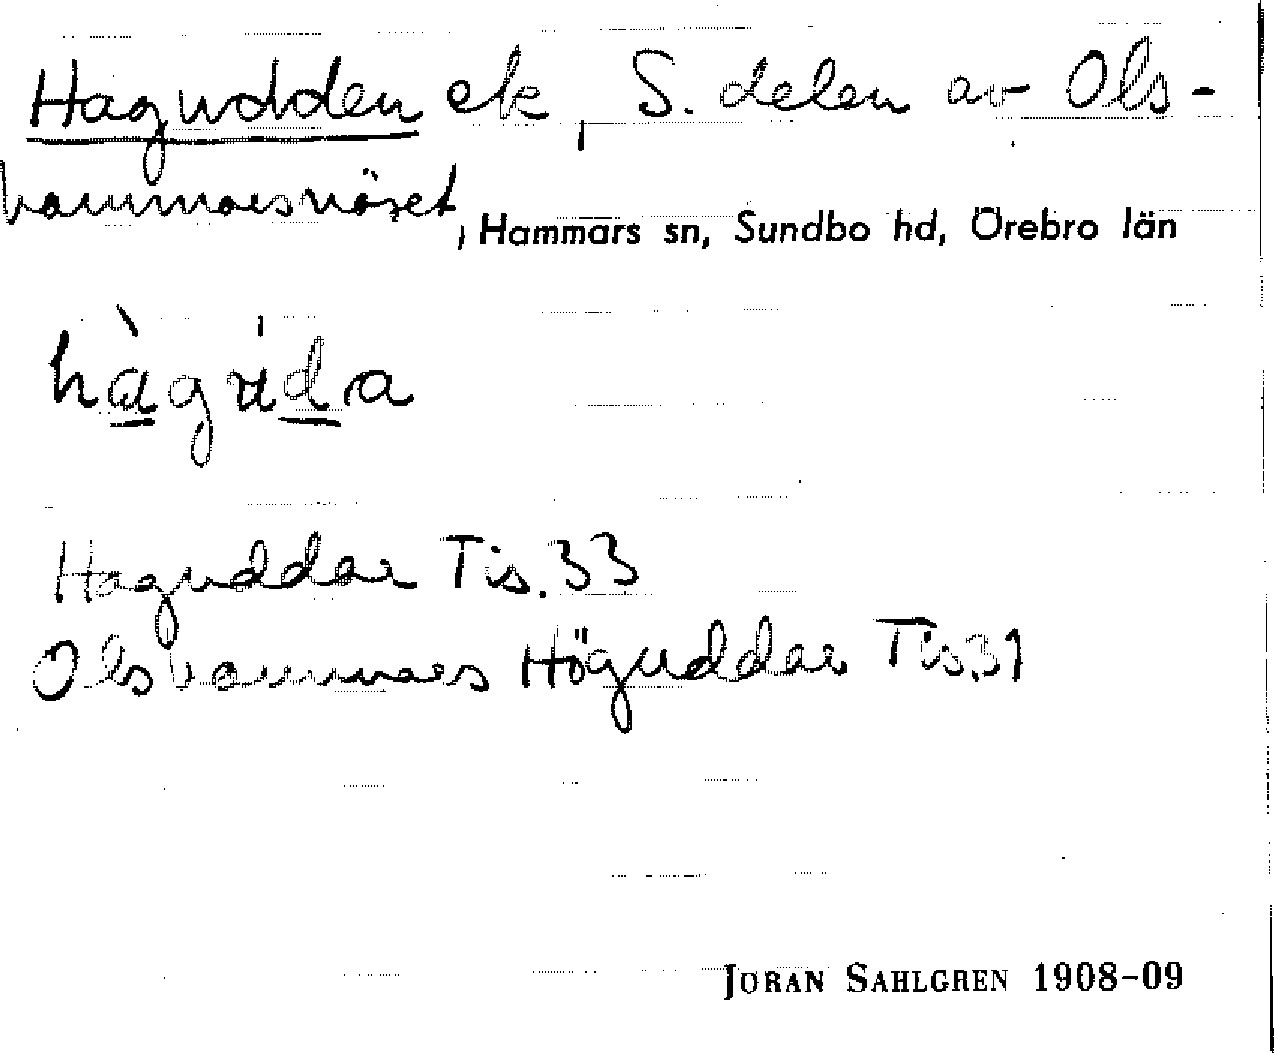 Hagudden ek, S. delen av Ols-
hammarsnäset, Hammars sn, Sundbo hd, Örebro län
hàgúda
Haguddar Tis. 33
Olshammars Höguddar Tis 31
JÖRAN SAHLGREN 1908-09